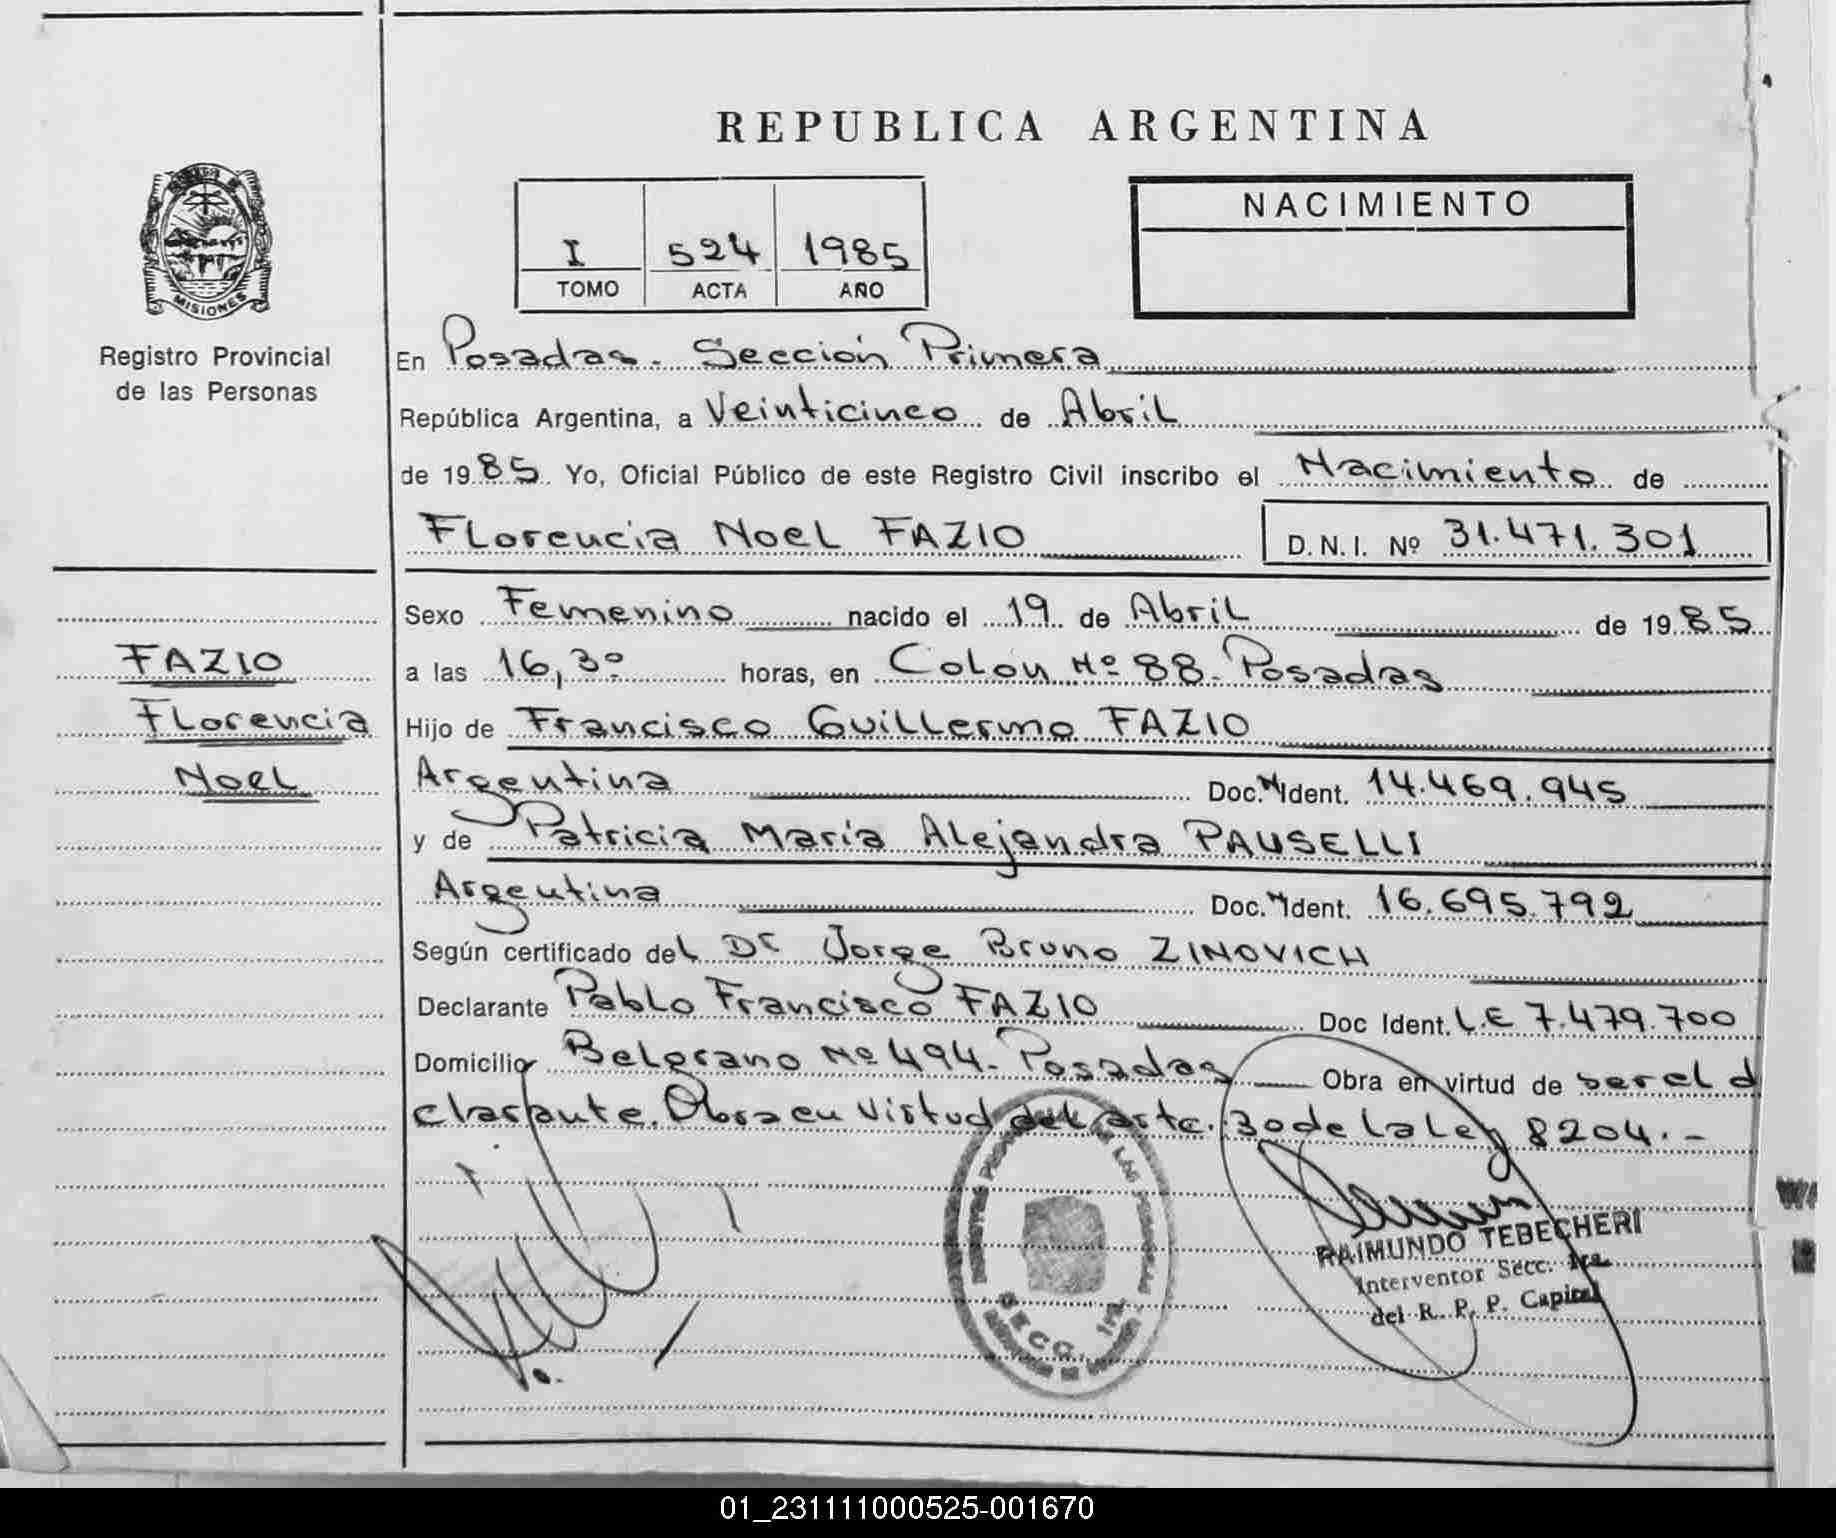 REPUBLICA ARGENTINA
I 524 1985
TOMO ACTA AÑO
NACIMIENTO
MISIONES
Registro Provincial
de las Personas
En Posadas. Sección Primera
República Argentina, a Veinticinco de Abril
de 1985 Yo, Oficial Público de este Registro Civil inscribo el Nacimiento de
Florencia Noel FAZIO D.N.I. Nº 31.471.301
Sexo Femenino nacido el 19 de Abril de 1985
FAZIO
a las 16,30 horas, en Colon Nº 88. Posadas
Florencia
Hijo de Francisco Guillermo FAZIO
Noel
Argentina Doc. Ident. 14.469.945
y de Patricia María Alejandra PAUSELLI
Argentina Doc. Ident. 16.695.792
Según certificado del Dr Jorge Bruno ZINOVICH
Declarante Pablo Francisco FAZIO Doc Ident. L.E 7.479.700
Domicilio Belgrano Nº 494. Posadas Obra en virtud de ser el d
clarante. Obra en virtud del artc. 30 de la Ley 8204.-
RAIMUNDO TEBECHERI
Interventor Secc. 1ra.
del R. P. P. Capital
SECC. 1ra.
01_231111000525-001670